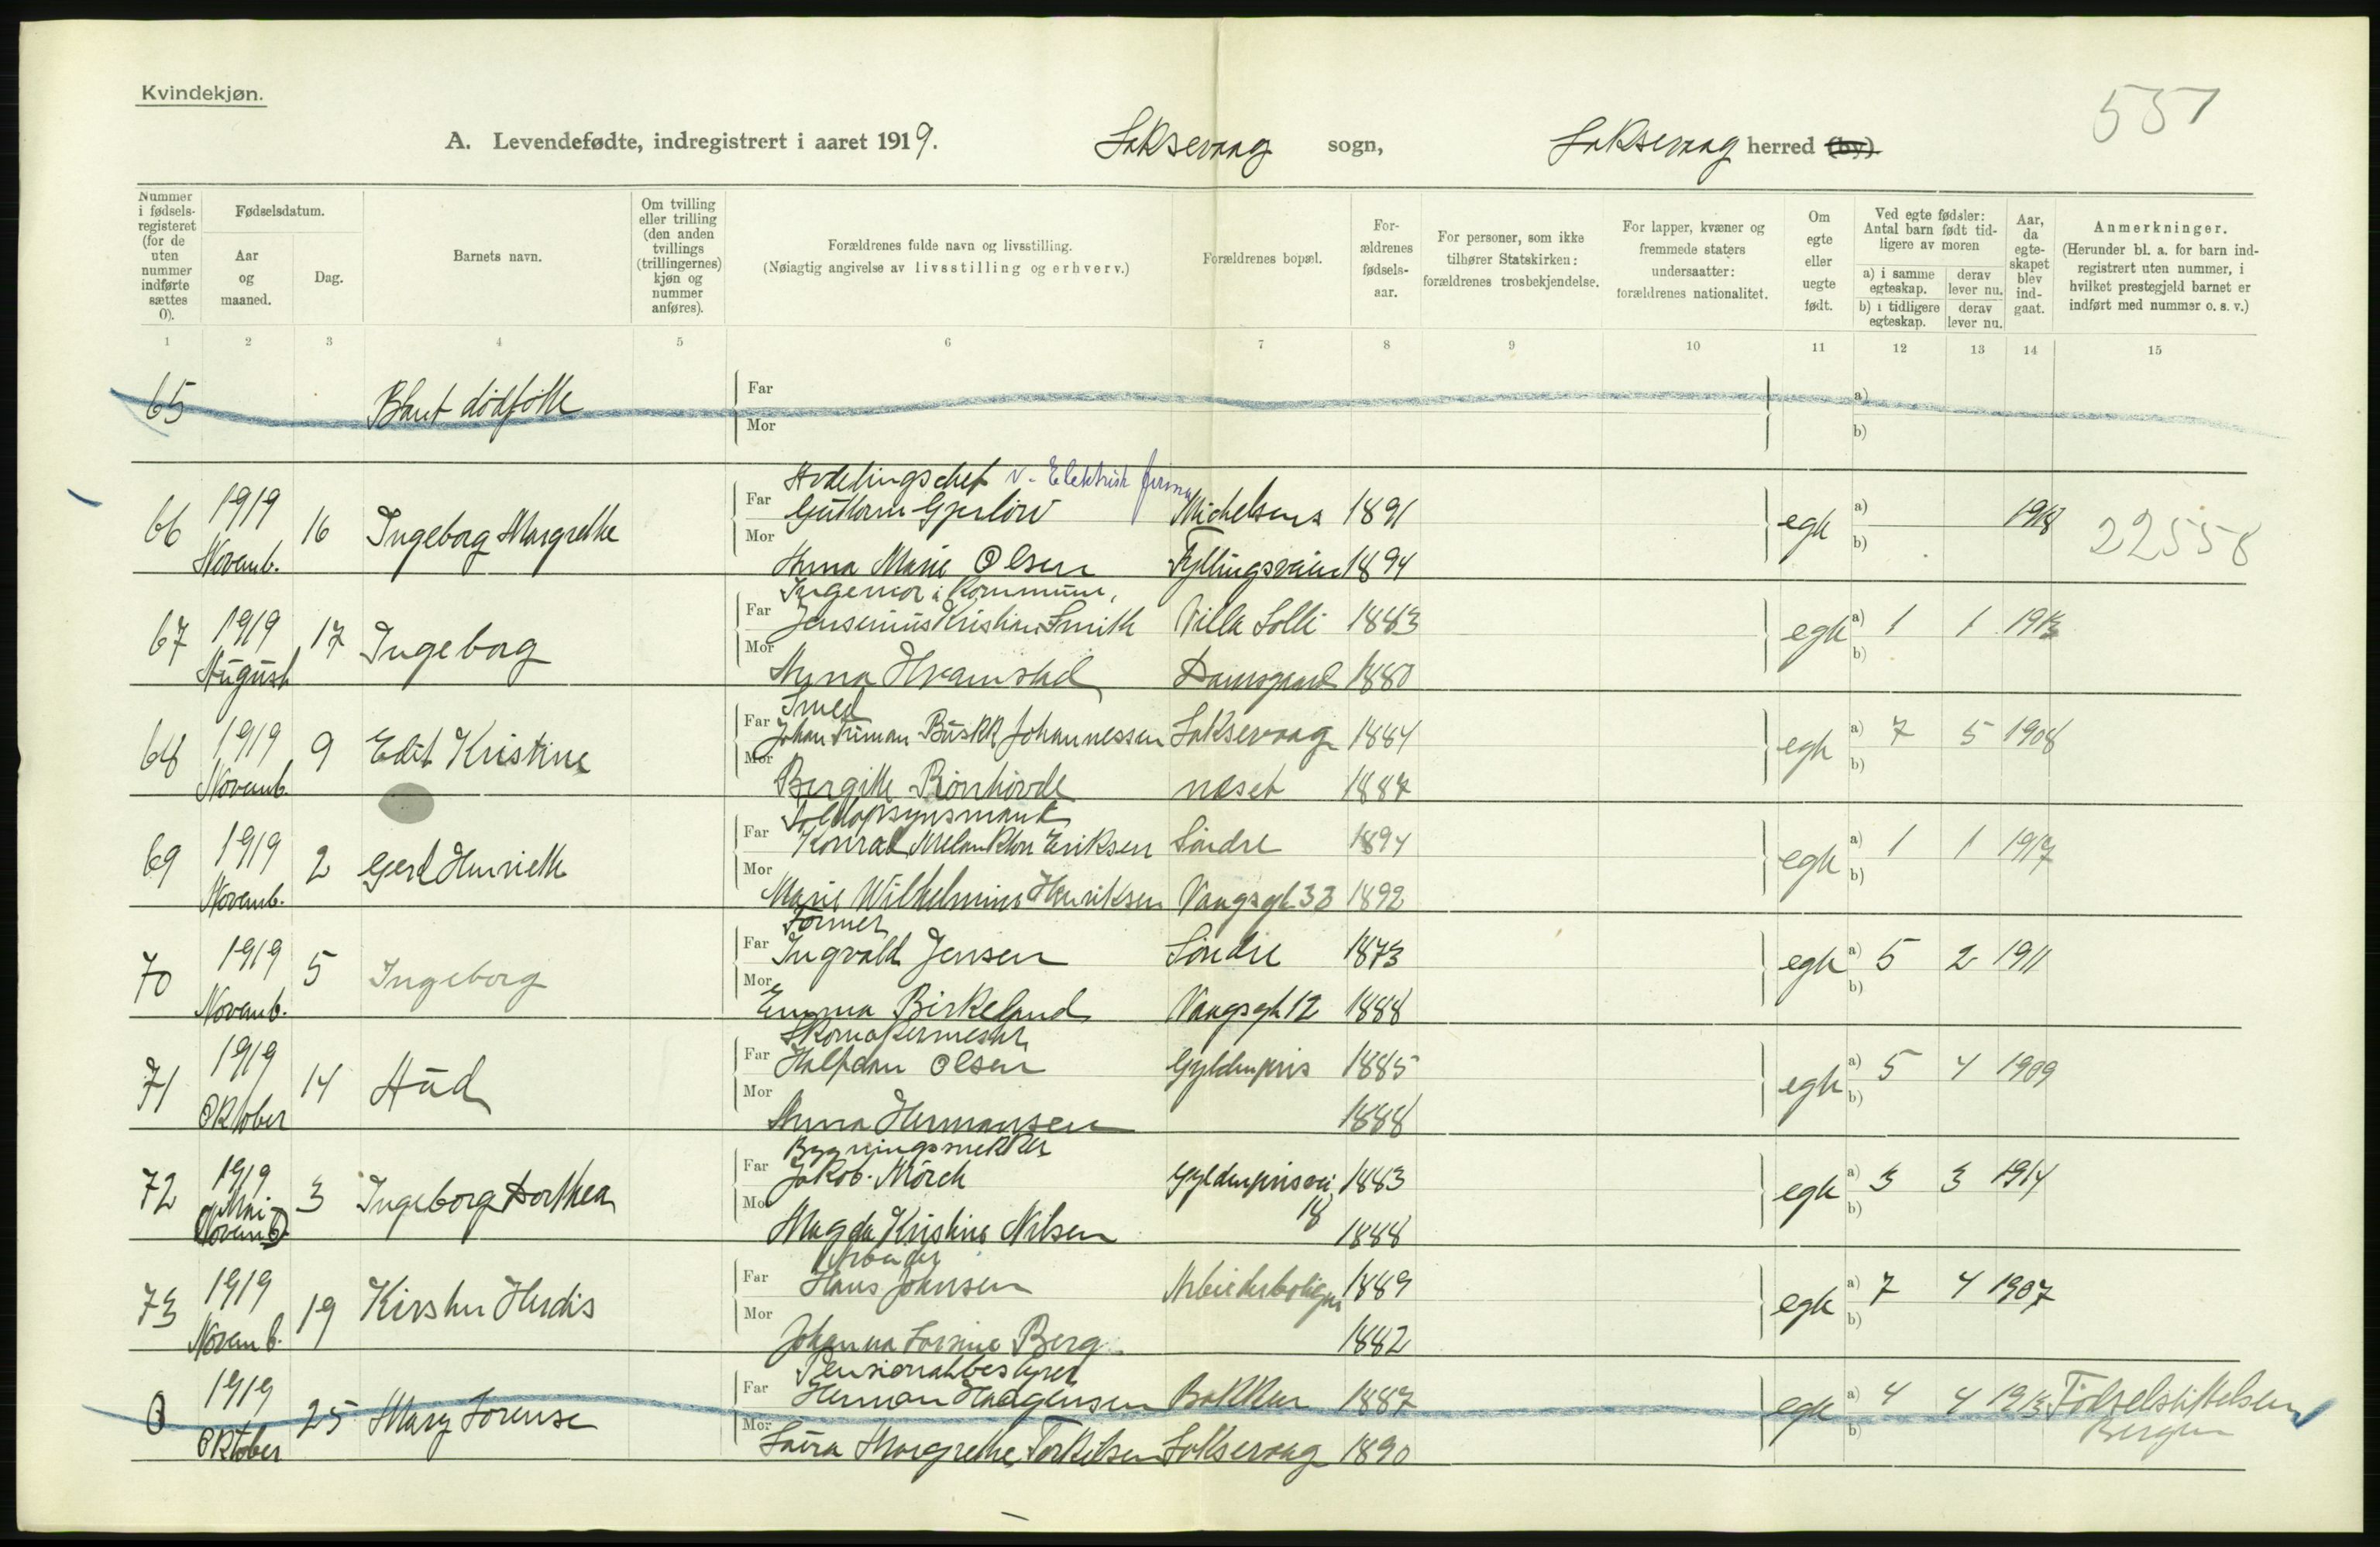 Kvindekjøn.
551
A. Levendefødte, indregistrert i aaret 1919. Laksevaag sogn, Laksevaag herred (by)
Nummer i fødsels-registeret (for de uten nummer indførte sættes 0).
Fødselsdatum.
Aar og maaned.
Dag.
Barnets navn.
Om tvilling eller trilling (den anden tvillings (trillingernes) kjøn og nummer anføres).
Forældrenes fulde navn og livsstilling.
(Nøiagtig angivelse av livsstilling og erhverv.)
Forældrenes bopæl.
For-ældrenes fødsels-aar.
For personer, som ikke tilhører Statskirken: forældrenes trosbekjendelse.
For lapper, kvæner og fremmede staters undersaatter: forældrenes nationalitet.
Om egte eller uegte født.
Ved egte fødsler: Antal barn født tid-ligere av moren
a) i samme egteskap. derav lever nu.
b) i tidligere egteskap. derav lever nu.
Aar, da egte-skapet blev ind-gaat.
Anmerkninger.
(Herunder bl. a. for barn ind-registrert uten nummer, i hvilket prestegjeld barnet er indført med nummer o. s. v.)
1 2 3 4 5 6 7 8 9 10 11 12 13 14 15
65 Far a)
Mor b)
Avdelingschef v. Elektrisk firma
66 1919 16 Ingeborg Margrethe Far Guttorm Gjerløw Michelsens 1891 egte a) 1918 22558
Novemb. Mor Anna Marie Olsen Fyllingsveien 1894 b)
Ingeniør i Kommunen,
67 1919 17 Ingeborg Far Jensenius Kristian Smith Villa Solli 1883 egte a) 1 1 1913
August Mor Anna Hvamstad Damsgaard 1880 b)
Smed
68 1919 9 Edit Kristine Far Johan Buskk Johannessen Laksevaag 1884 egte a) 7 5 1908
Novemb. Mor Bergitte Rönhövde næset 1887 b)
Toldopsynsmand
69 1919 2 Gerd Henriette Far Konrad Melankton Eriksen Söndre 1894 egte a) 1 1 1917
Novemb. Mor Marie Wilhelmine Henriksen Vaagsgt 33 1892 b)
Former
70 1919 5 Ingeborg Far Ingvald Jensen Söndre 1873 egte a) 5 2 1911
Novemb. Mor Emma Birkeland Vaagsgt 12 1888 b)
Skomakermester
71 1919 14 Aud Far Halfdan Olsen Gyldenpris 1885 egte a) 5 4 1909
Oktober Mor Anna Hermansen 1888 b)
Bygningssnekker
72 1919 3 Ingeborg Dorthea Far Jakob Mörch Gyldenprisvei 1883 egte a) 3 3 1914
Mai (Novemb.) Mor Magda Kristine Nilsen 18 1888 b)
Arbeider
73 1919 19 Kirsten Herdis Far Hans Johnsen Arbeiderboligen 1889 egte a) 7 4 1907
Novemb. Mor Johanna Lovise Berg 1882 b)
Pensionatbestyrer
0 1919 25 Mary Lorense Far Herman Haagensen Bakken 1887 egte a) 4 4 1913 Födselsstiftelsen
Oktober Mor Laura Margrethe Torkilsen Laksevaag 1890 b) Bergen